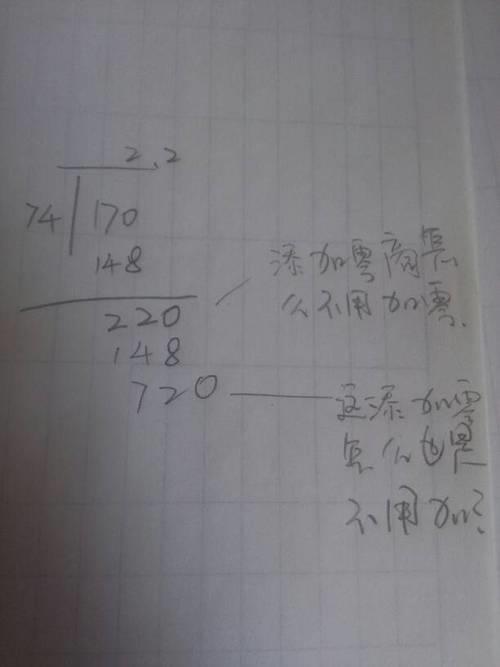 2.2
74 170
148
220
148
720
添加零商怎
么不用加零.
这添加零
怎么也是
不用加?